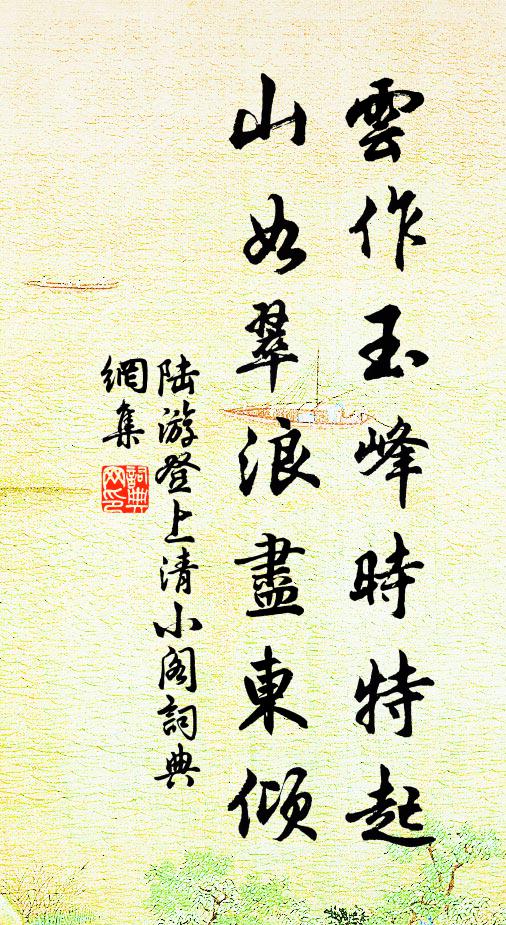 雲作玉峰時特起
山如翠浪盡東傾
陆游登上清小阁詞典
網集
詞典網印